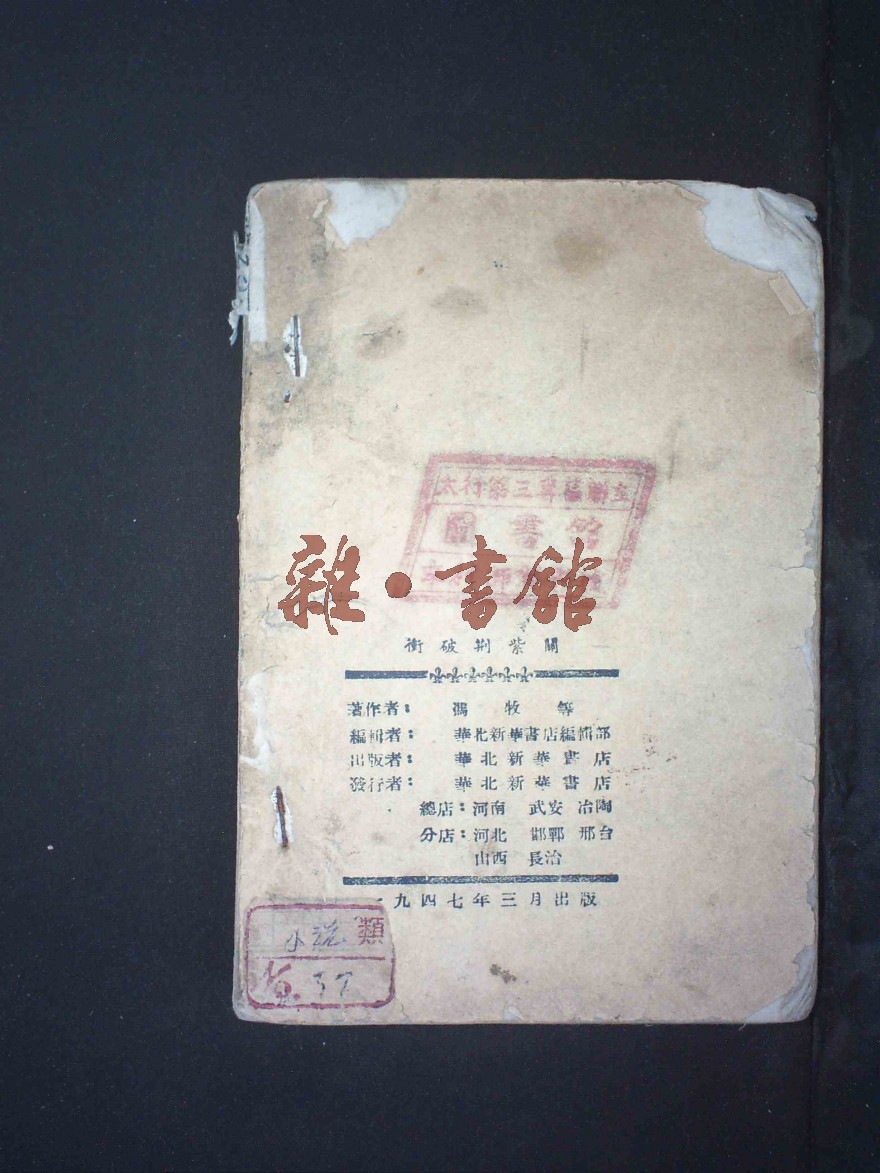 太行第三專區聯立
圖書館
雜·書館
衝破荆紫關
著作者：馮牧等
編輯者：華北新華書店編輯部
出版者：華北新華書店
發行者：華北新華書店
總店：河南 武安 冶陶
分店：河北 邯鄲 邢台
山西 長治
一九四七年三月出版
小说類
37